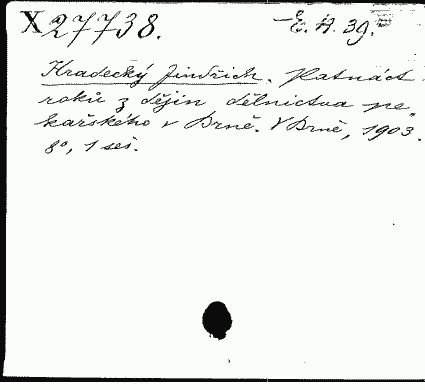 X 27738.
E. H. 39.
Hradecký Jindřich. Patnáct
roků z dějin dělnictva pe„
kařského v Brně. V Brně, 1903.
8°, 1 seš.